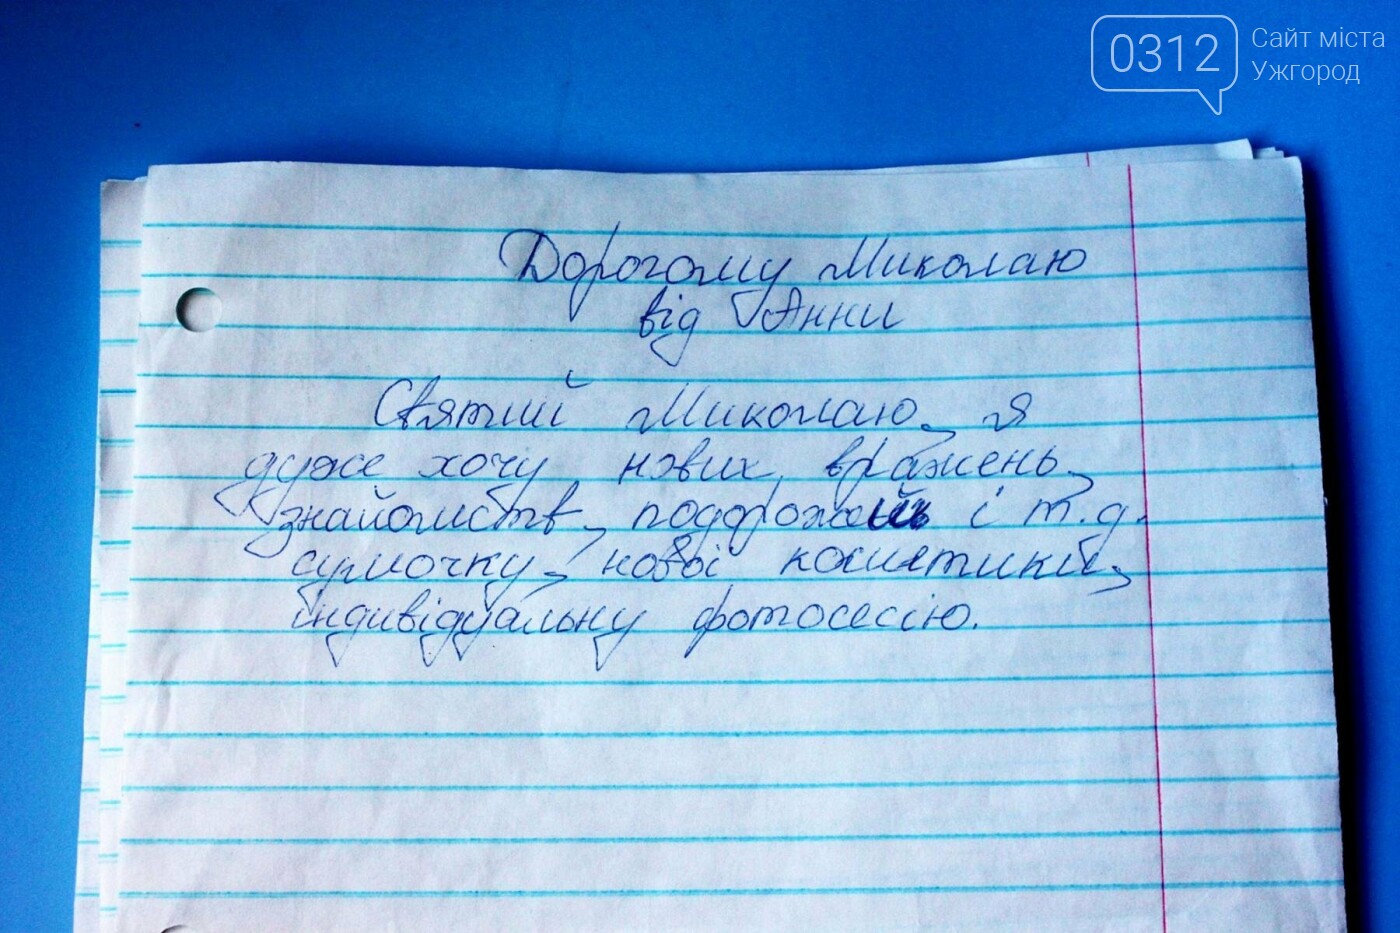 0312
Сайт міста
Ужгород
Дорогому Миколаю
від Анни
Святий Миколаю, я
дуже хочу нових вражень,
знайомств, подорожей і т.д.
сумочку, нової косметики,
індивідуальну фотосесію.